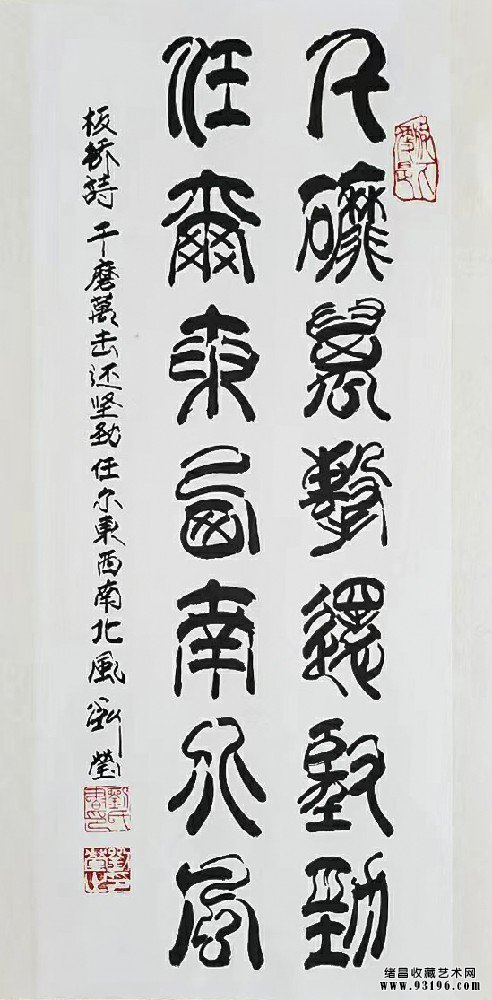 千磨萬擊還堅勁
任爾東西南北風
板桥詩 千磨萬击还坚劲任尔東西南北風 劉瑩
劉氏書印
绪昌收藏艺术网
www.93196.com